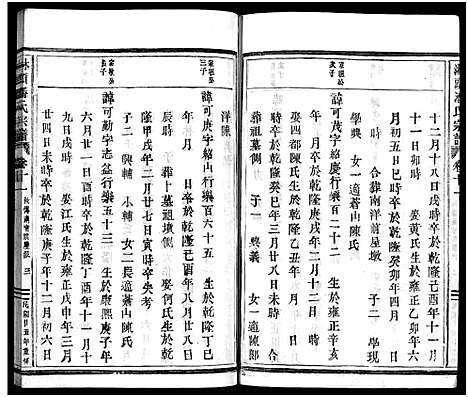 十二月十八日戌時卒於乾隆己酉年十一月
十一日時 娶黃氏生於雍正乙卯年六
月初五日巳時卒於乾隆癸卯年四月
時 合葬南洋前星墩 子二 學現
學典 女一適蒼山陳氏
宗祖公次子
諱可茂字 慶行樂百二十二 生於雍正辛亥
年 月 時卒於乾隆庚戌年二月十二日 時
娶四都陳氏生於乾隆乙丑年 月 日
時卒於乾隆癸巳年三月廿八日未時 合
葬祖墓側 子一 興義 女一適陳郎
洋陳
三子
諱可庚字紹山行樂百六十五 生於乾隆丁巳
年 月 時卒於乾隆己酉年八月廿八日
辰時 葬上墓祖墩側 娶何氏生於乾
隆甲戌年二月廿七日寅時卒失考
子二 興轉 小轉 女二長適蒼山陳氏
長子
諱可勤字志益行樂五十三 生於康熙庚子年
六月廿一日酉時卒於乾隆丁酉年十一月十
九日戌時 娶江氏生於雍正戊申年三月
廿四日未時卒於乾隆庚子年十二月初六日
卷十一
三